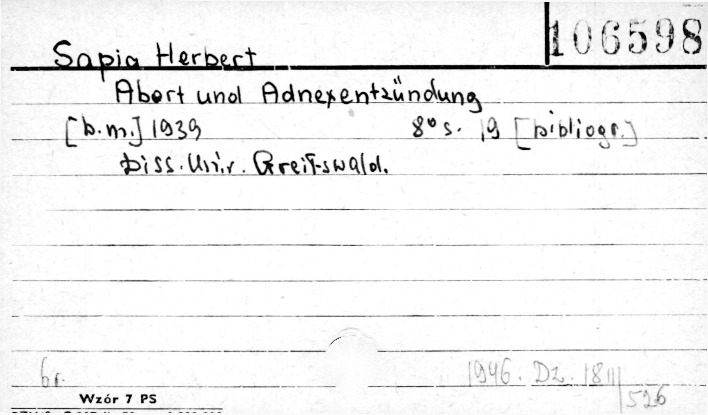 106598
Sapia Herbert
Abort und Adnexentzündung
[b.m.] 1939 8° s. 19 [bibliogr.]
Diss. Univ. Greifswald.
br. 1946. Dz. 18111/526
Wzór 7 PS